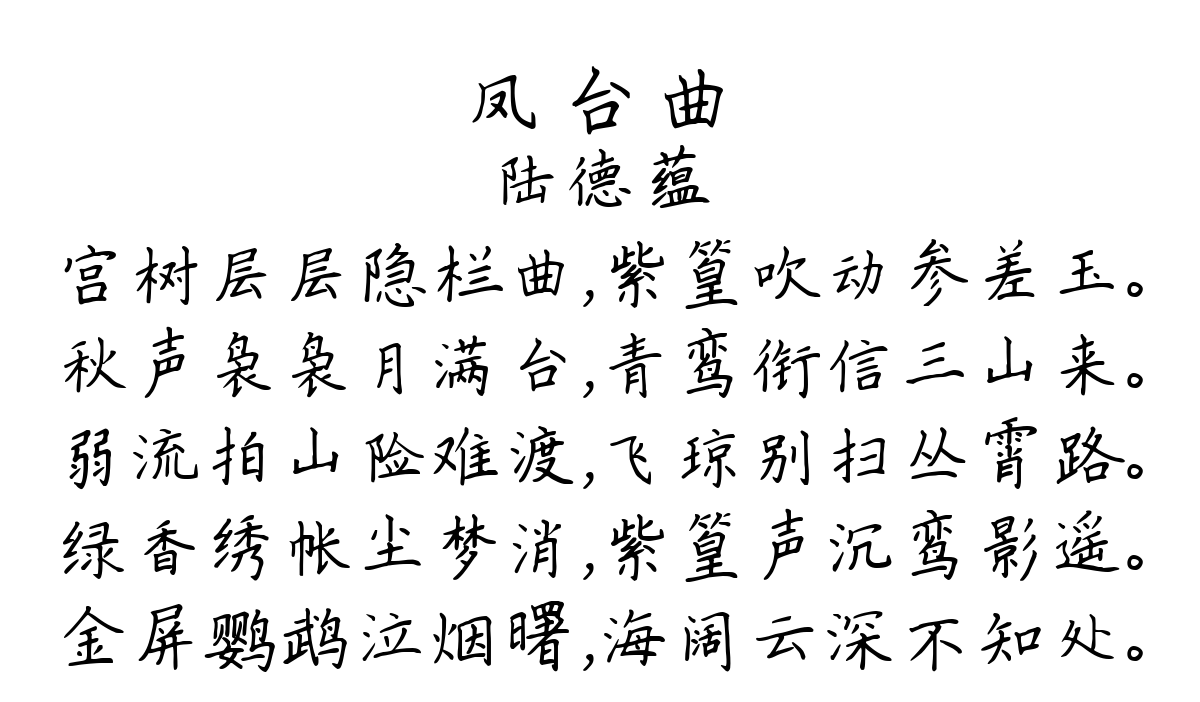 凤台曲
陆德蕴
宫树层层隐栏曲,紫篁吹动参差玉。
秋声袅袅月满台,青鸾衔信三山来。
弱流拍山险难渡,飞琼别扫丛霄路。
绿香绣帐尘梦消,紫篁声沉鸾影遥。
金屏鹦鹉泣烟曙,海阔云深不知处。